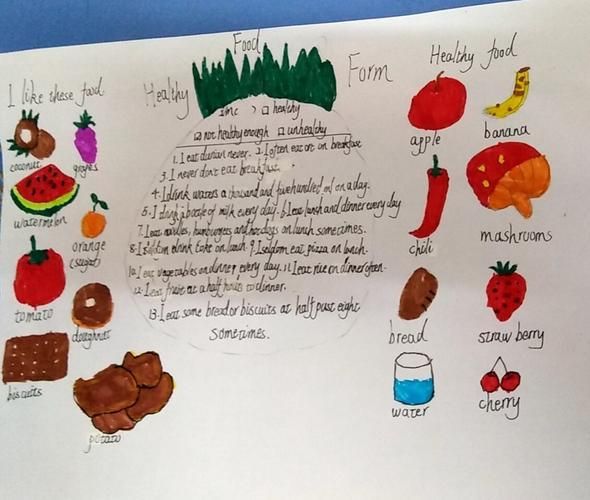 Food
Healthy
Form
Healthy food
I like these food
coconut
grapes
watermelon
orange
tomato
doughnut
biscuits
potato
□ healthy
□ not healthy enough □ unhealthy
1. I eat durian never. 2. I often eat on breakfast
3. I never don't eat breakfast.
4. I drink waters a thousand and five hundred ml on a day.
5. I drink a bocele of milk every day. 6. I eat lunch and dinner every day
7. I eat noodles, humburgers and hot dogs on lunch sometimes.
8. I seldom drink coke on lunch. 9. I seldom eat pizza on lunch.
10. I eat vegetables on dinner every day. 11. I eat rice on dinner often.
12. I eat fruit at a half hours to dinner.
13. I eat some bread or biscuits at half past eight
sometimes.
apple
banana
chili
mashrooms
bread
straw berry
water
cherry